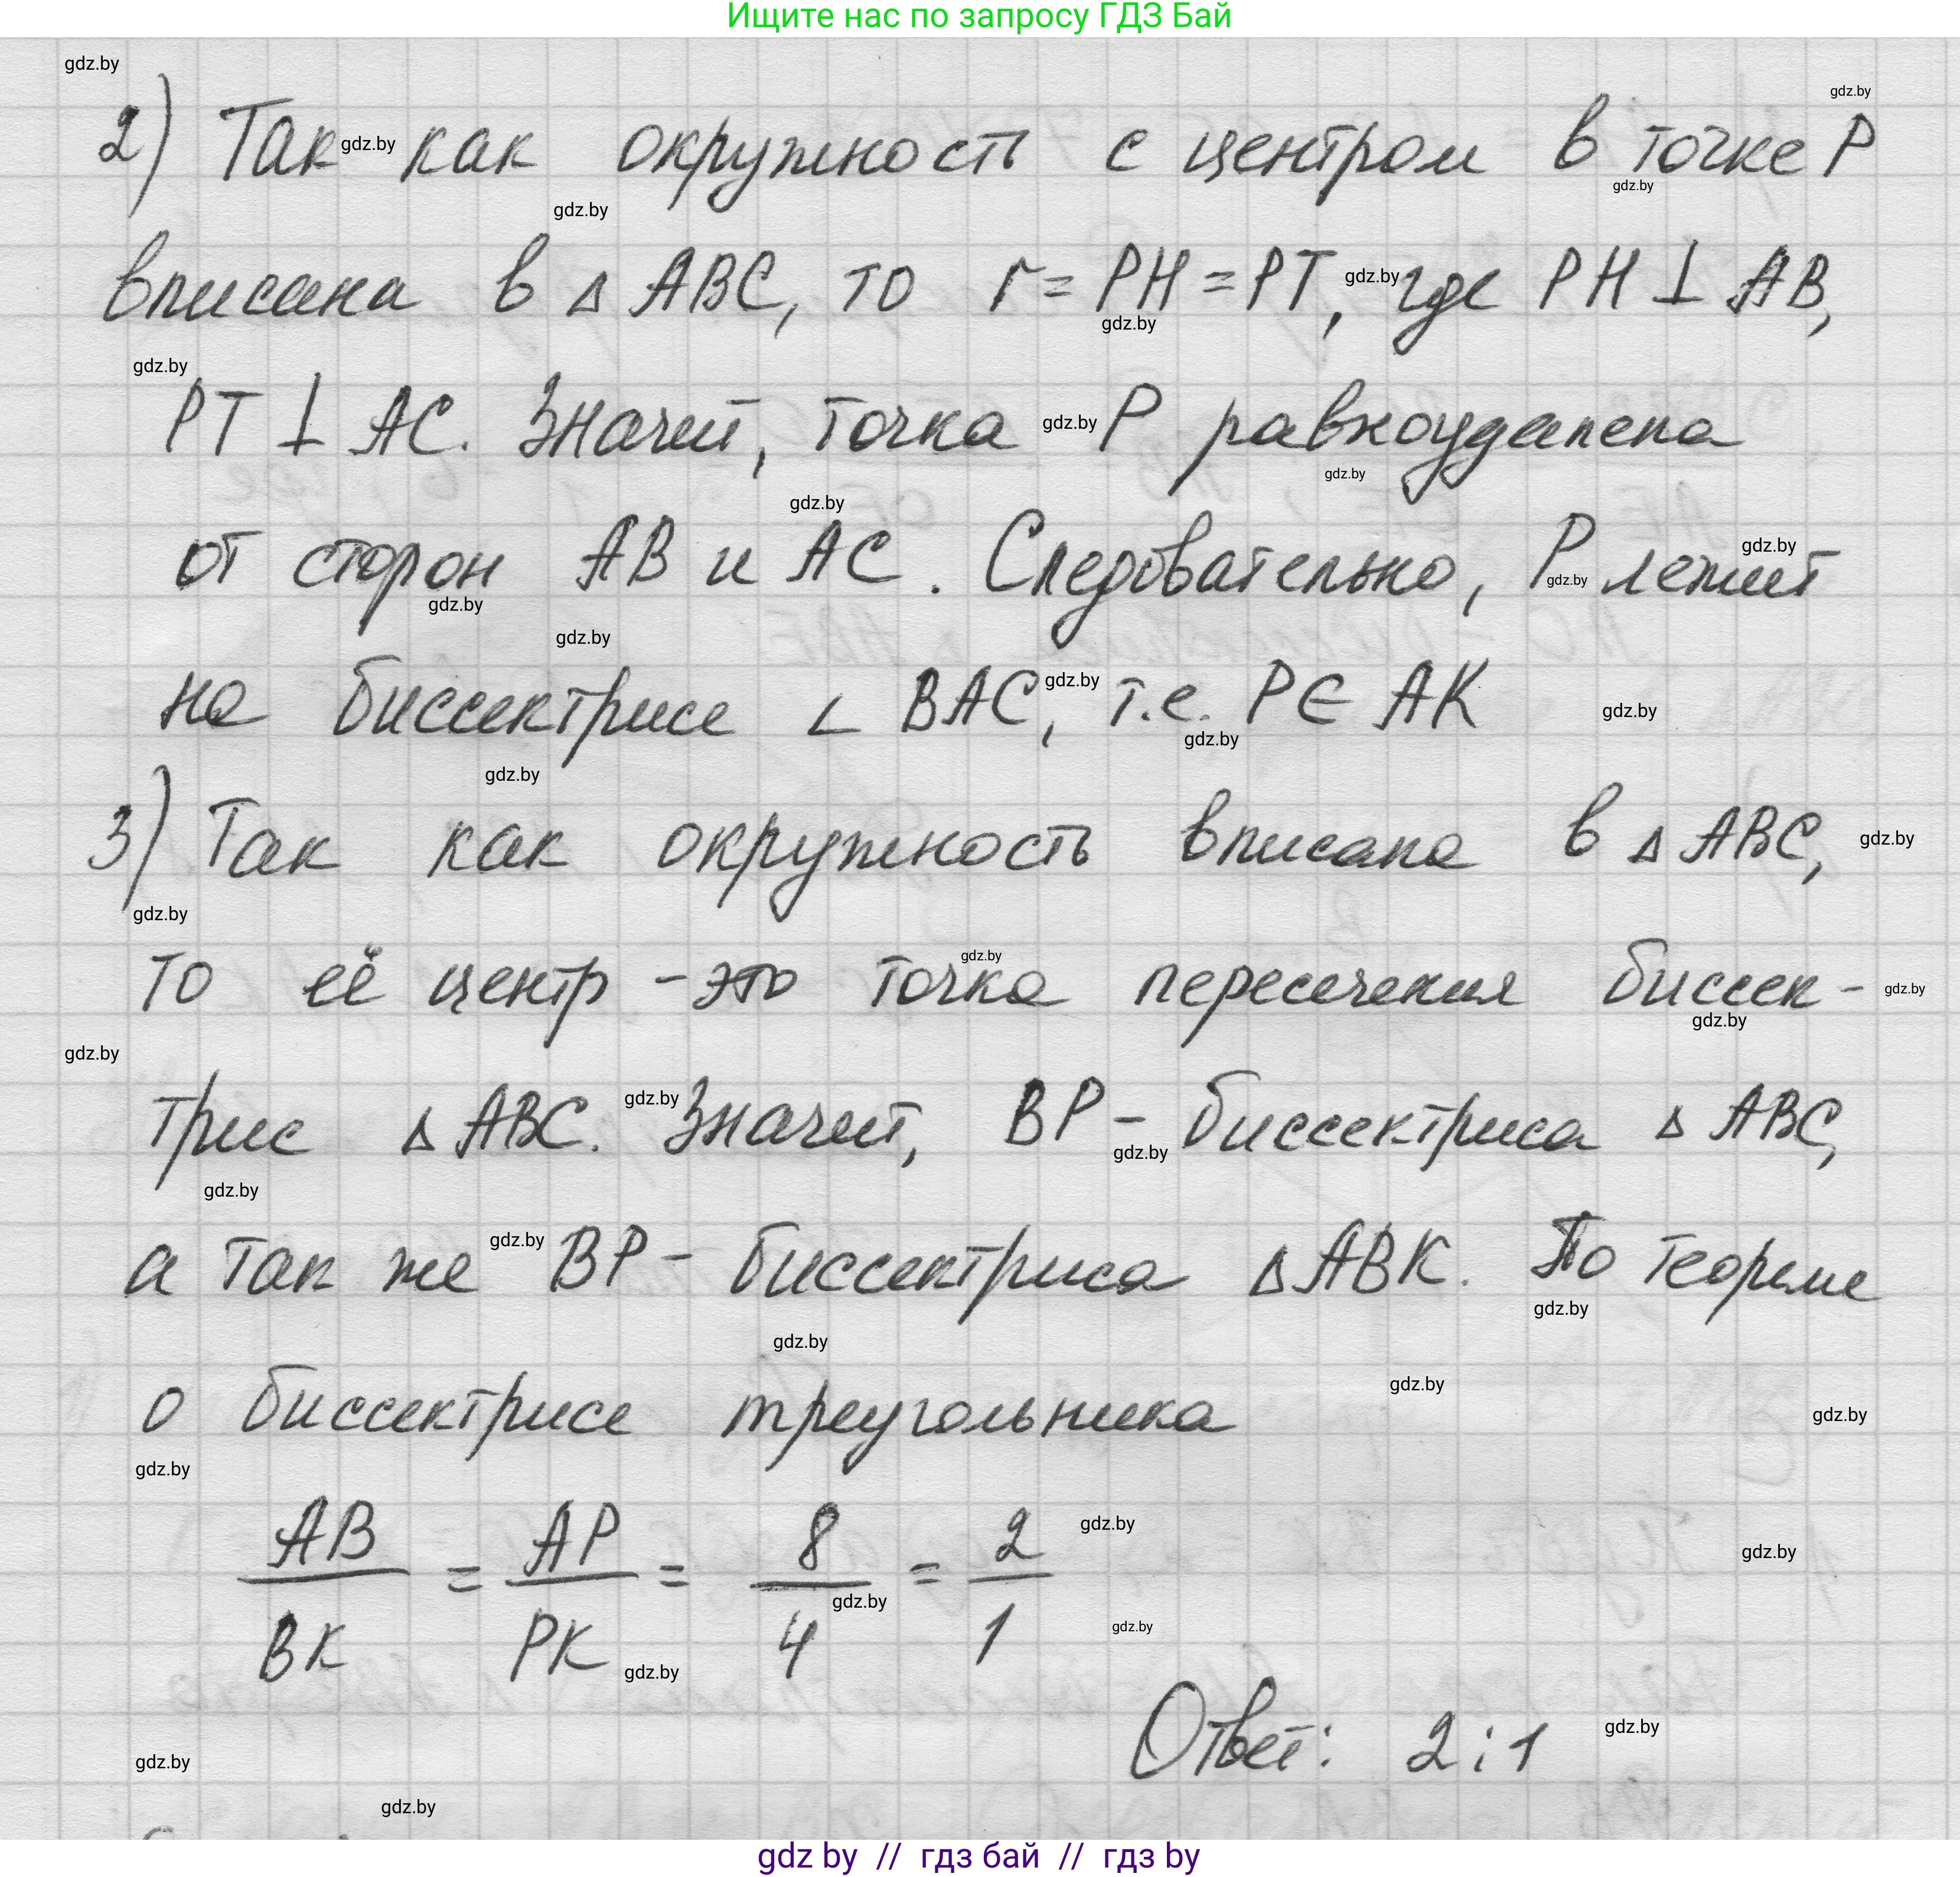 Ищите нас по запросу ГДЗ Бай
2) Так как окружность с центром в точке P
вписана в △ ABC, то r = PH = PT, где PH ⊥ AB,
PT ⊥ AC. Значит, точка P равноудалена
от сторон AB и AC. Следовательно, P лежит
на биссектрисе ∠ BAC, т.е. P ∈ AK
3) Так как окружность вписана в △ ABC,
то её центр - это точка пересечения биссек-
трис △ ABC. Значит, BP - биссектриса △ ABC,
а так же BP - биссектриса △ ABK. По теореме
о биссектрисе треугольника
AB/BK = AP/PK = 8/4 = 2/1
Ответ: 2:1
gdz by // гдз бай // гдз by